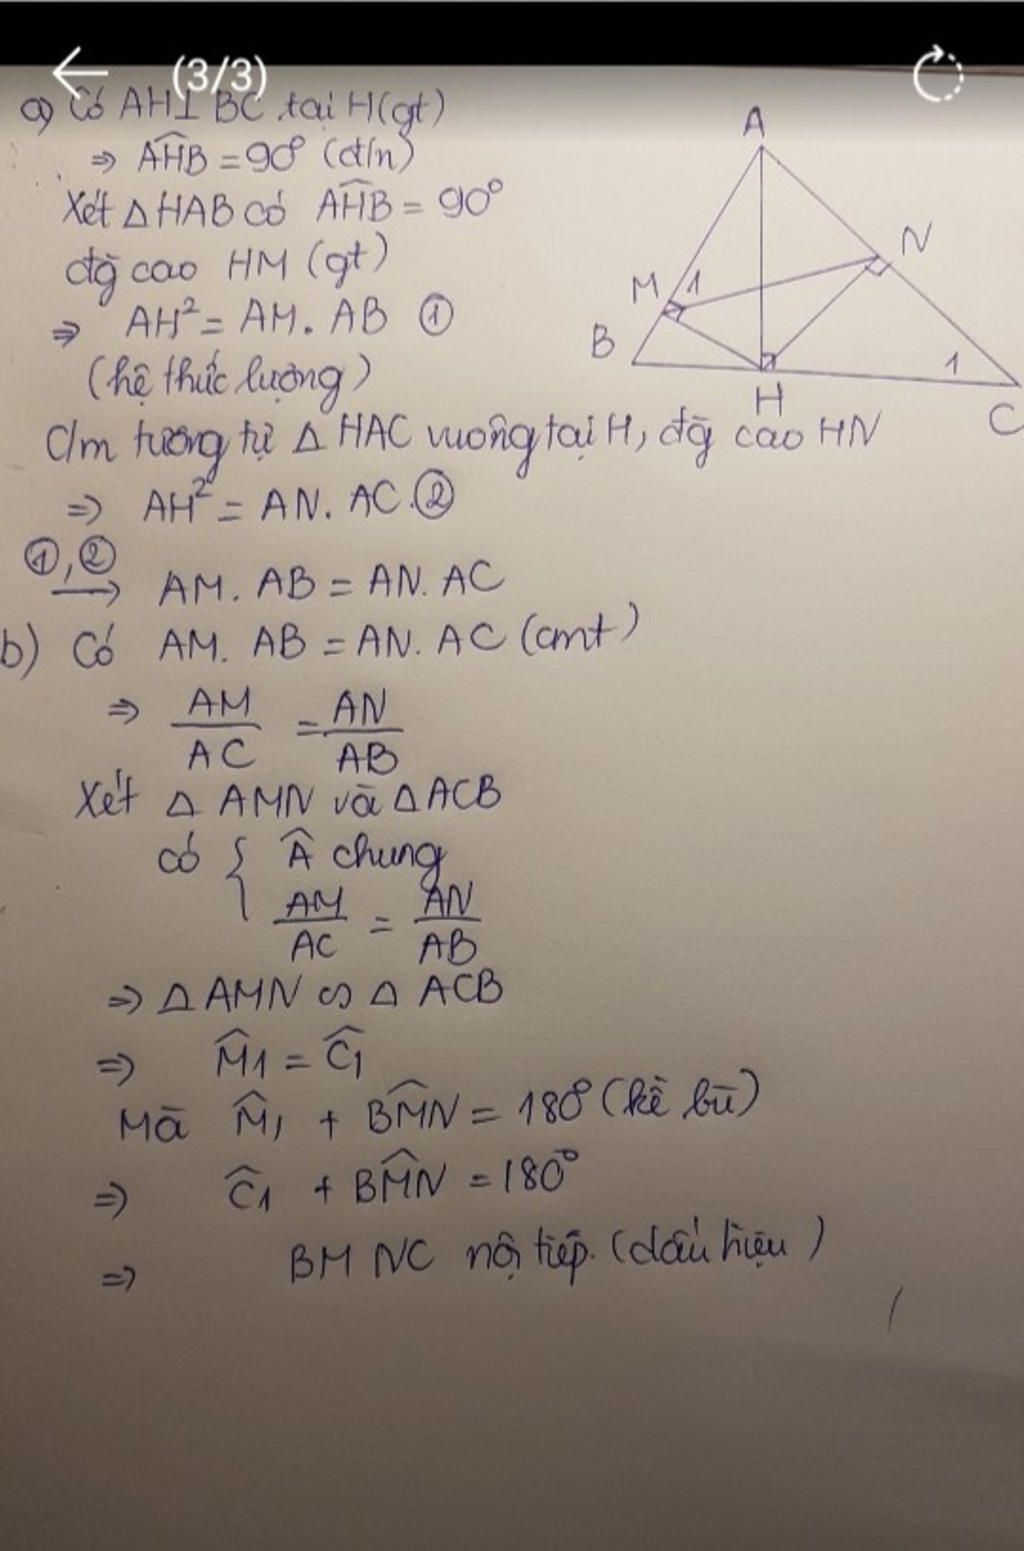 (3/3)
a) Có AH⊥BC tại H(gt)
⇒ \widehat{AHB} = 90° (đ/n)
Xét △HAB có \widehat{AHB} = 90°
đg cao HM (gt)
⇒ AH² = AM. AB ①
(hệ thức lượng)
C/m tương tự △HAC vuông tại H, đg cao HN
⇒ AH² = AN. AC. ②
①,② → AM. AB = AN. AC
b) Có AM. AB = AN. AC (cmt)
⇒ AM/AC = AN/AB
Xét △ AMN và △ACB
có { Â chung
AM/AC = AN/AB
⇒ △ AMN ∽ △ ACB
⇒ \widehat{M}1 = \widehat{C}1
Mà \widehat{M}1 + \widehat{BMN} = 180° (kề bù)
⇒ \widehat{C}1 + \widehat{BMN} = 180°
⇒ BMNC nội tiếp. (dấu hiệu)
A
N
M 1
B
1
H
C